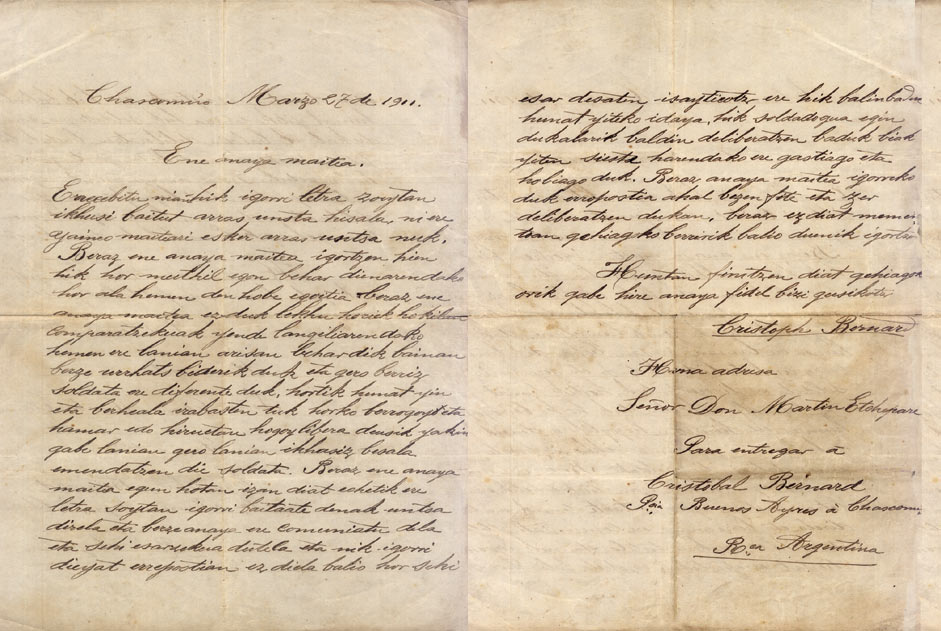 Chascomús Marzo 27 de 1911.
Ene anaya maitia.
Errecebitu nian hik igorri letra zoņtan
ikhusi baitut arras untsa hisala, ni ere
yainco maiteari esker arras untsa nuk.
Beraz ene anaya maitea igortzen hien
hik hor meithil egon behar dienarendako
hor ala hemen den hobe egoitia beraz ene
anaya maitea ez duk lekhu horiek hokikun
comparatzekuak yende langiliarendako
hemen ere lanian arisan behar dik bainan
berze urrhats biderik duk eta gero berriz
soldata ere diferente duk, hortik hunat yin
eta berheala irabasten tuk horko berrogoy eta
hamar edo hiruetan hogoy libera deusik yakin
gabe lanian gero lanian ikhasiz besala
emendatzen die soldata. Beraz ene anaya
maitia egun hotan izan diat echetik ere
letra soytan igorri baitaate denak untsa
direla eta berze anaya ere comuniatu dela
eta sehi esarzekua dutela eta nik igorri
dieyat errepostian ez diela balio hor sehi
esar desaten isaytecotz ere hik balinbaduk
hunat yiteko idaya, hik soldadogua egin
dukalarik baldin deliberatzen baduk biak
yiten siesta harendako ere gastiago eta
hobiago duk. Beraz anaya maitia igorreko
duk errepostia ahal bezen fite eta zer
deliberatzen dukan, beraz ez diat memen
toan gehiagho berririk balio duenik igortze
Huntan finitzen diat gehiagok
orik gabe hire anaya fidel bizi guisikotz
Cristoph Bernard
Huna adresa
Señor Don Martin Etchepare
Para entregar á
Cristobal Bérnard
Pcia Buenos Ayres á Chascomus
Rca Argentina